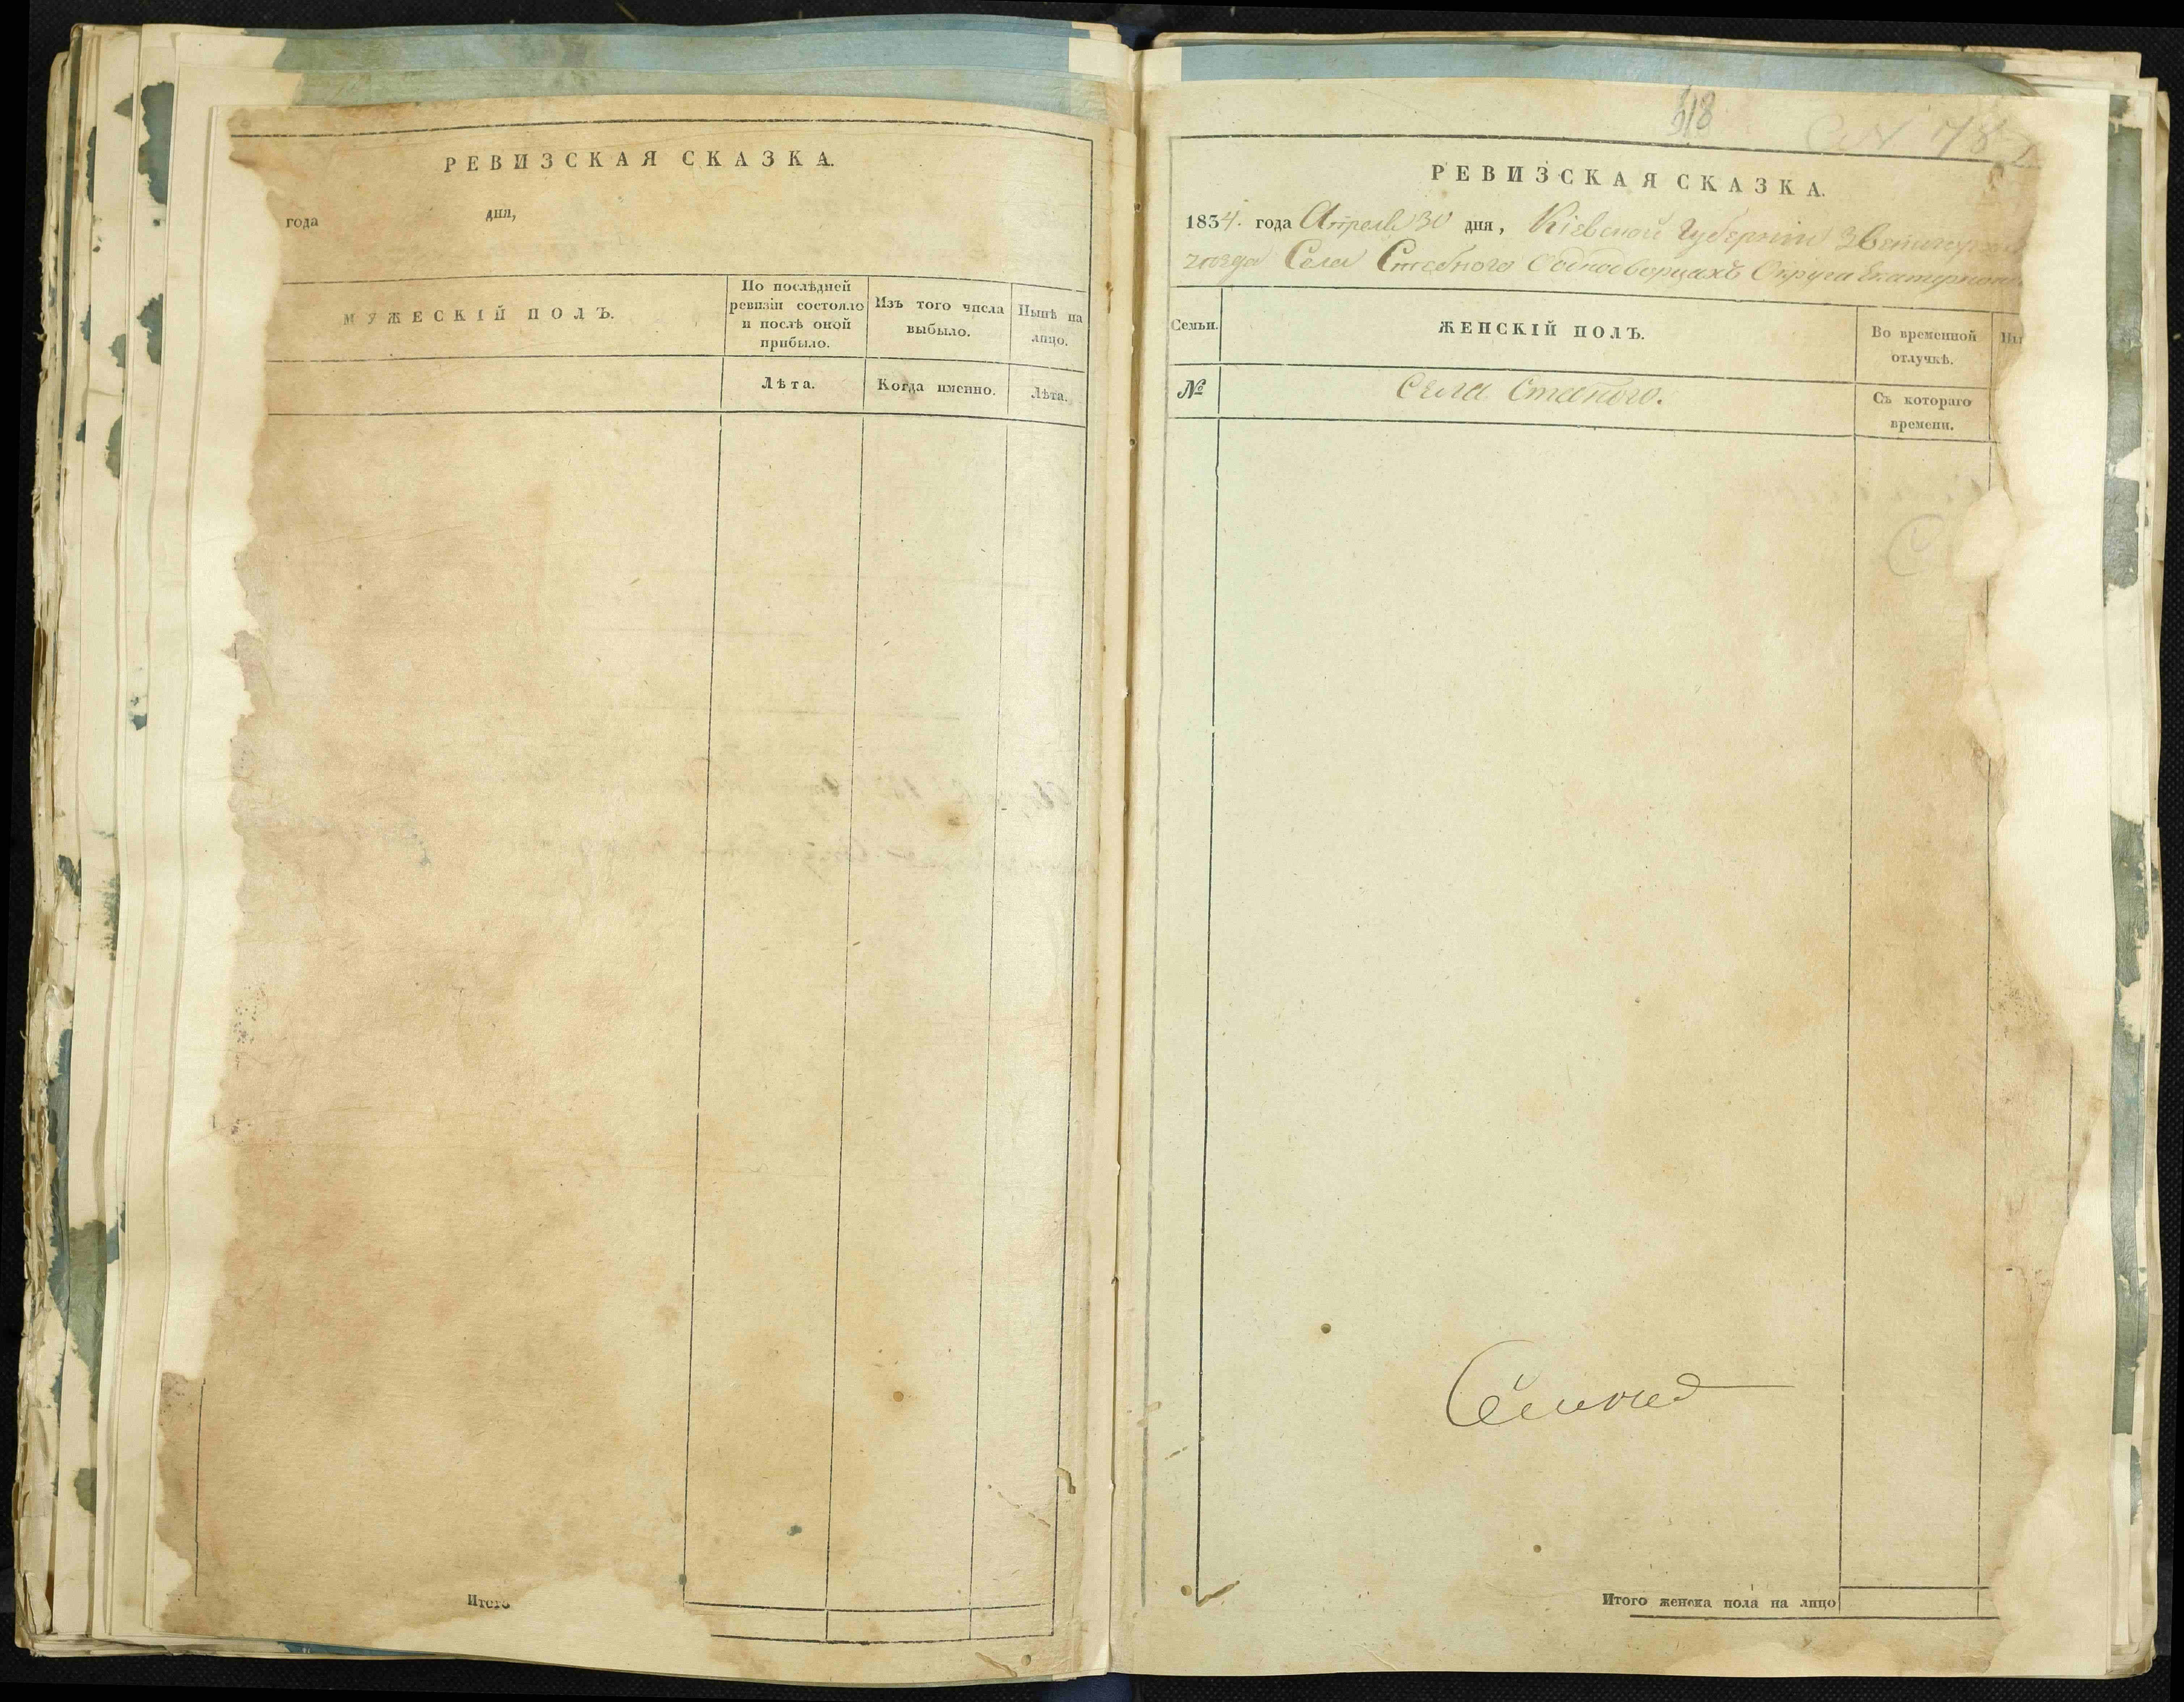 РЕВИЗСКАЯ СКАЗКА.
года дня,
МУЖЕСКІЙ ПОЛЪ.
По послѣдней
ревизіи состояло
и послѣ оной
прибыло.
Изъ того числа
выбыло.
Нынѣ на
лицо.
Лѣта.
Когда именно.
Лѣта.
Итого
518
78
РЕВИЗСКАЯ СКАЗКА.
1834. года Апреля 30 дня, Кіевской Губерніи
уезда Села Стебного Округа
Семьи.
ЖЕНСКІЙ ПОЛЪ.
Во временной
отлучкѣ.
Ны
№
Села
Съ котораго
времени.
Итого женска пола на лицо